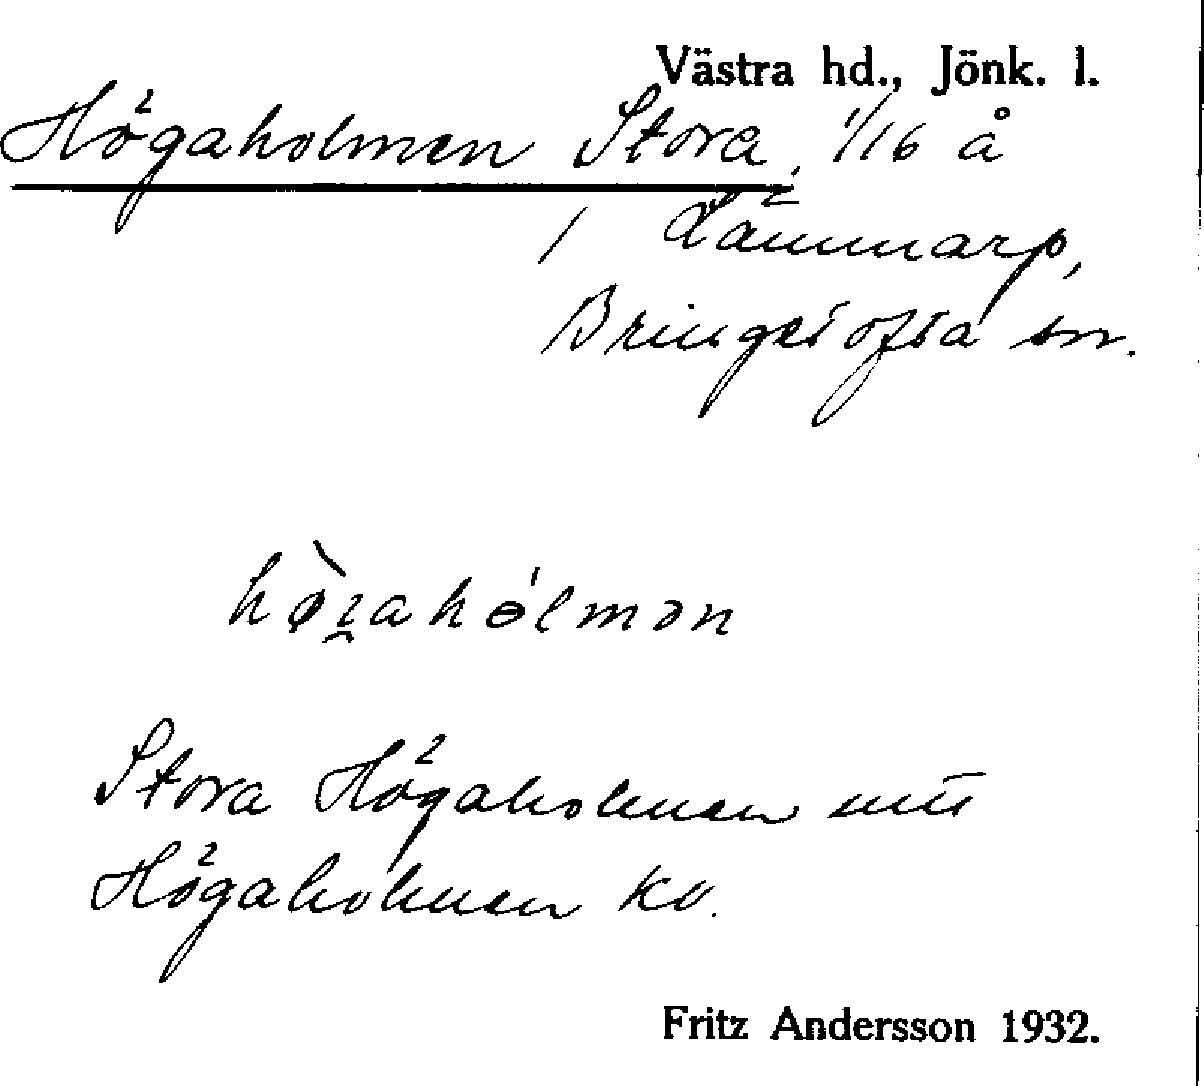 Västra hd., Jönk. l.
Högaholmen Stora, 1/16 å
/ Lämmarp,
Bringetofta sn.
hø̀ʓahɵ́lmən
Stora Högaholmen
Högaholmen
Fritz Andersson 1932.